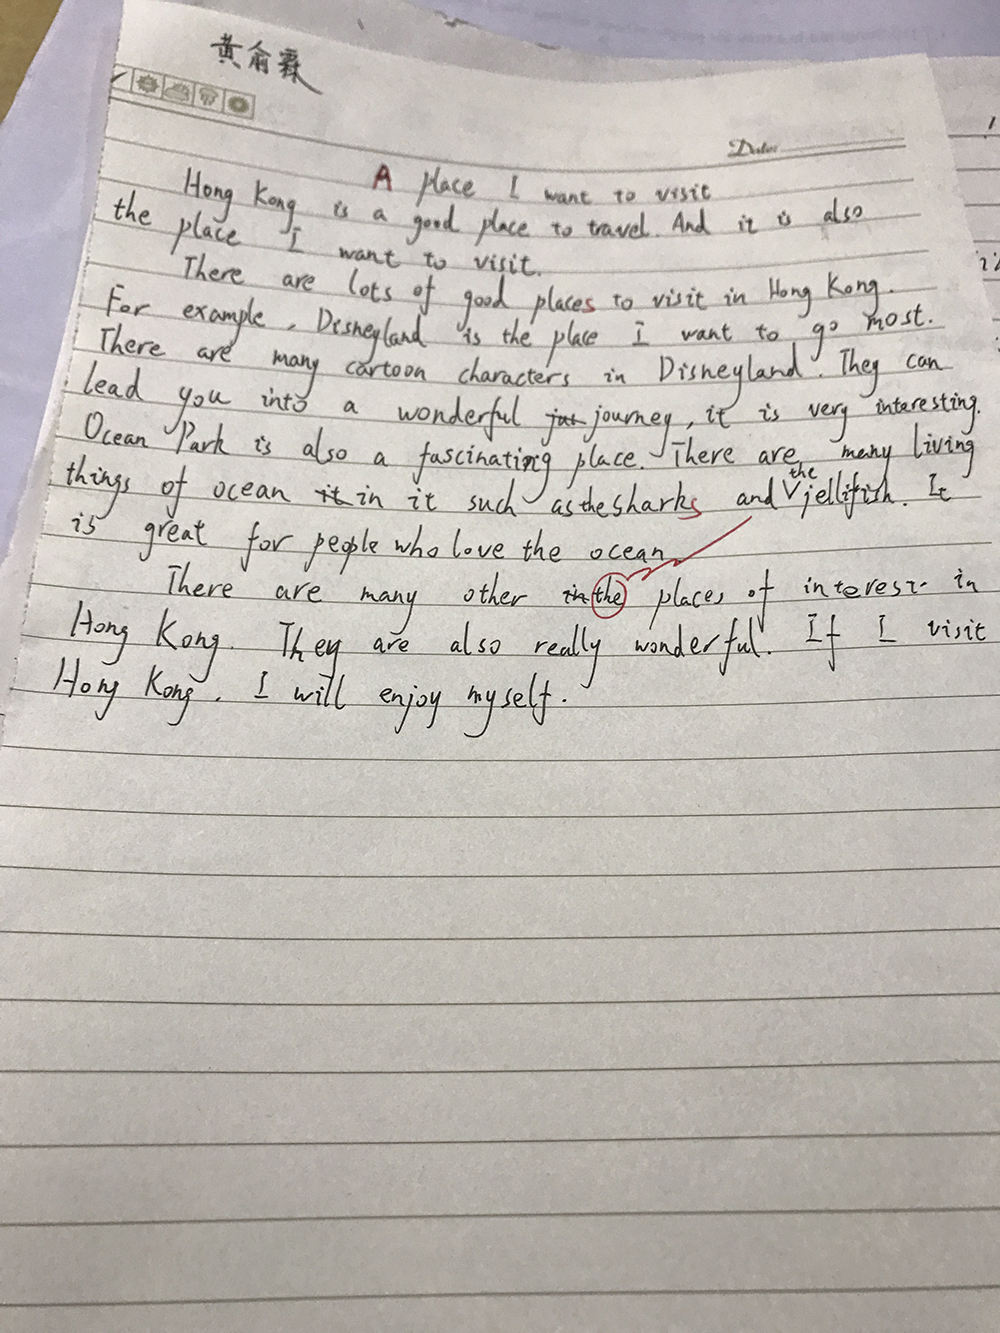 黄俞霖
Date
A place I want to visit
Hong Kong is a good place to travel. And it is also
the place I want to visit.
There are lots of good places to visit in Hong Kong.
For example, Disneyland is the place I want to go most.
There are many cartoon characters in Disneyland. They can
lead you into a wonderful jut journey, it is very interesting.
Ocean Park is also a fascinating place. There are many living
things of ocean it in it such as the sharks and the jellifish. It
is great for people who love the ocean.
There are many other in the places of interest in
Hong Kong. They are also really wonderful. If I visit
Hong Kong, I will enjoy myself.